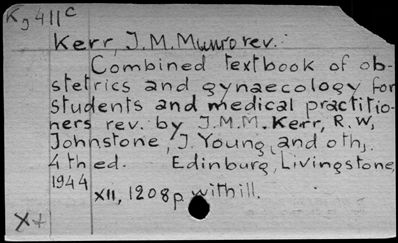 Kg411c
Kerr, J.M. Munro rev.
Combined textbook of ob-
stetrics and gynaecology for
students and medical practitio-
ners rev. by J.M.M. Kerr, R.W,
Johnstone, J. Young, and oth.
4th ed. Edinburg, Livingstone,
1944
XII, 1208p with ill.
X+